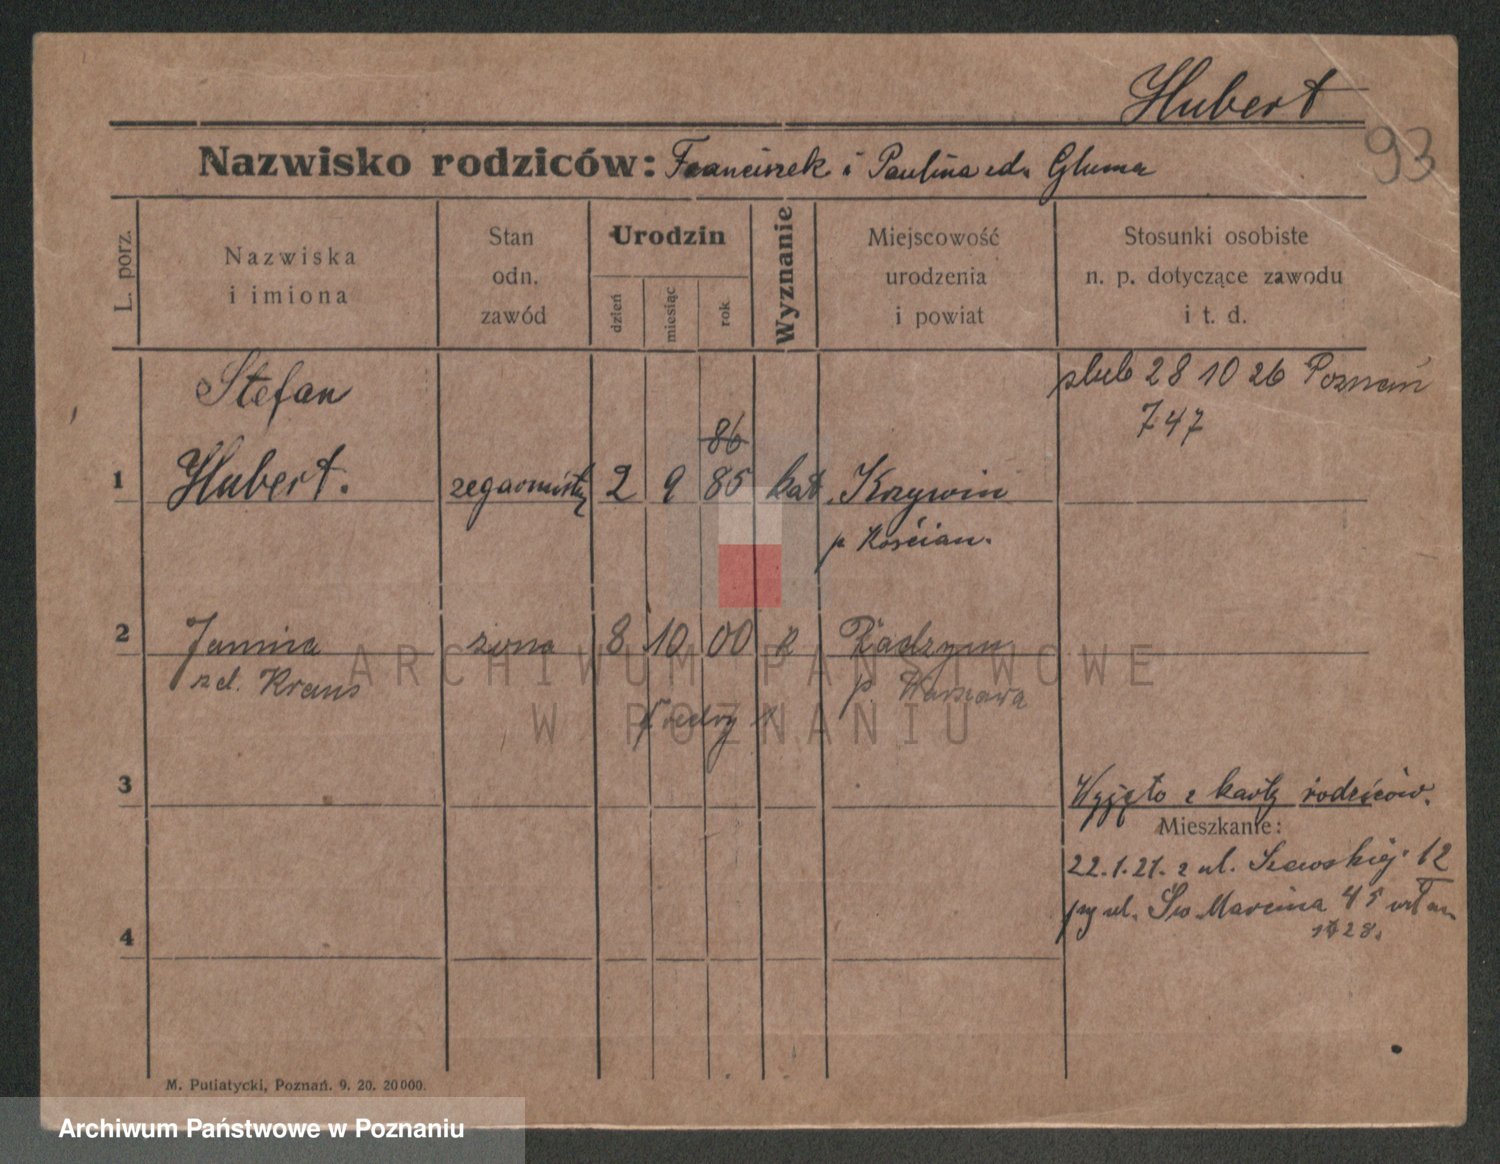 Hubert
93
Nazwisko rodziców: Franciszek i Paulina zd. Gluma
L. porz.
Nazwiska
i imiona
Stan
odn.
zawód
Urodzin
dzień
miesiąc
rok
Wyznanie
Miejscowość
urodzenia
i powiat
Stosunki osobiste
n. p. dotyczące zawodu
i t. d.
Stefan
ślub 28 10 26 Poznań
747
86
1 Hubert. zegarmistrz 2 9 85 kat. Krzywin
p Kościan.
2 Janina żona 8 10 00 k Radzym
zd. Kraus p. Warszawa
3
Wyjęto z karty rodziców.
Mieszkanie:
22.1.21. z ul. Szewskiej 12
ul. Św. Marcina 45
28.
4
M. Putiatycki, Poznań. 9. 20. 20000.
ARCHIWUM PAŃSTWOWE
W POZNANIU
Archiwum Państwowe w Poznaniu